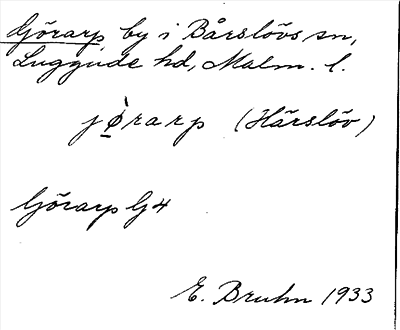 Görarp by i Bårslövs sn,
Luggude hd, Malm. l.
jø̀rarp (Härslöv)
Görarp G4
E. Bruhn 1933